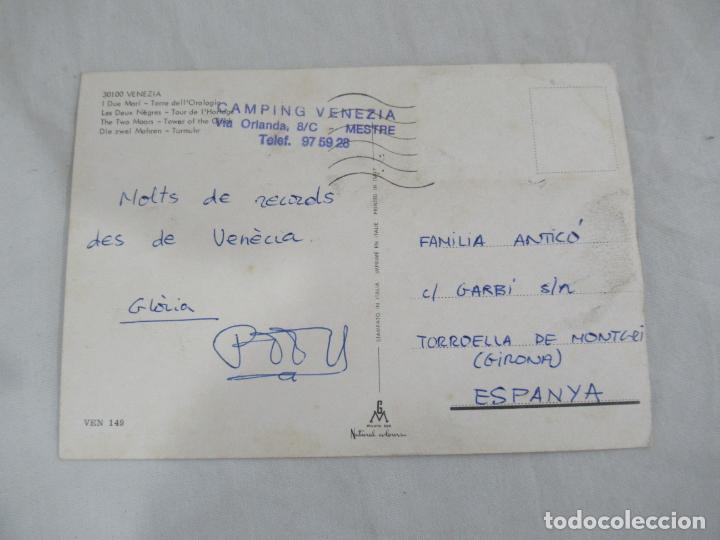 30100 VENEZIA
I Due Mori - Torre dell'Orologio
Les Deux Nègres - Tour de l'Horloge
The Two Moors - Tower of the Clock
Die zwei Mohren - Turmuhr
CAMPING VENEZIA
Via Orlanda, 8/C - MESTRE
Telef. 97 59 28
Molts de records
des de Venècia.
Glòria
STAMPATO IN ITALIA IMPRIMÉ EN ITALIE PRINTED IN ITALY
FAMILIA ANTICÓ
c/ GARBÍ s/n
TORROELLA DE MONTGRI
(GIRONA)
ESPANYA
VEN 149
Natural colours
todocoleccion